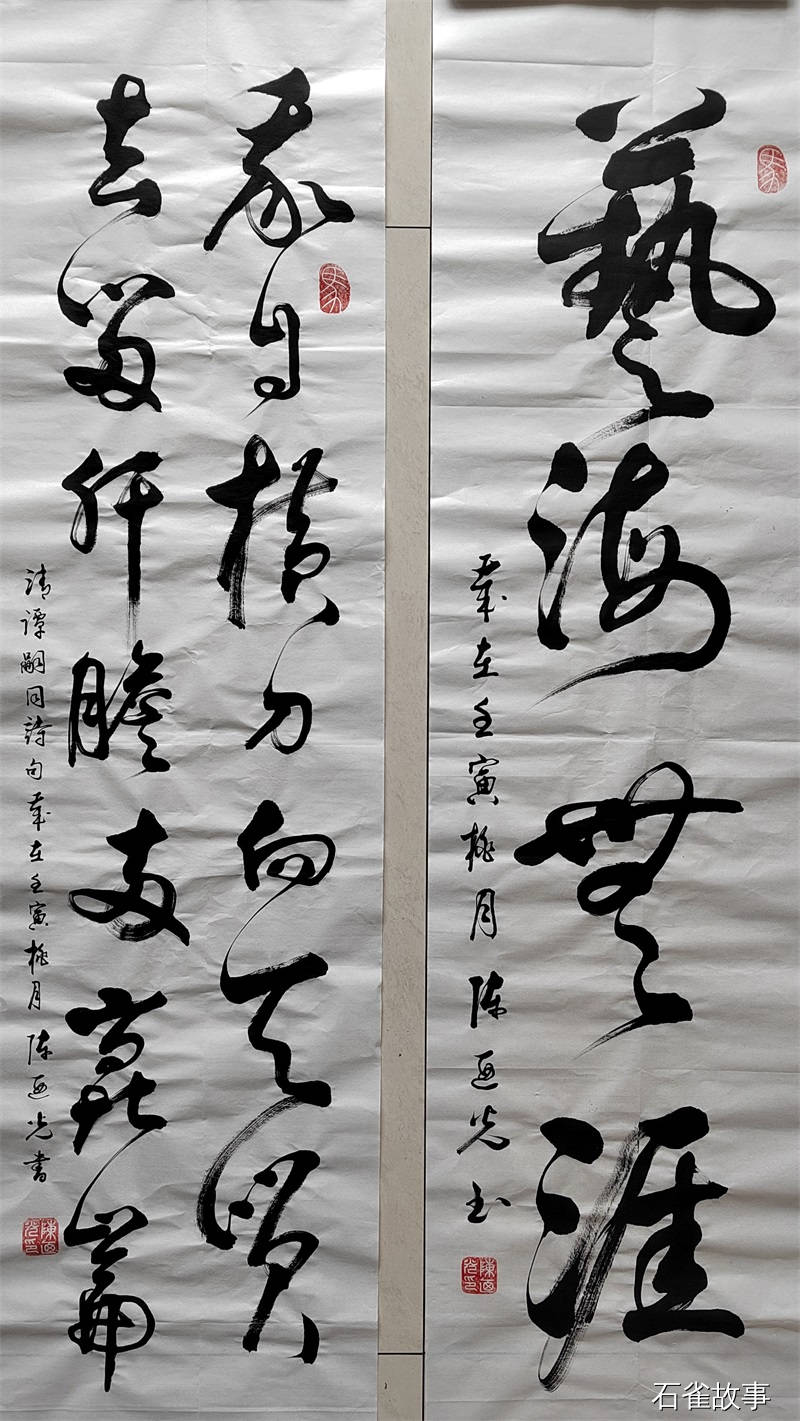 藝海無涯
歲在壬寅桃月陳亞光书
陳亞光印
我自橫刀向天笑
去留肝膽兩崑崙
清譚嗣同詩句歲在壬寅桃月陳亞光書
陳亞光印
石雀故事